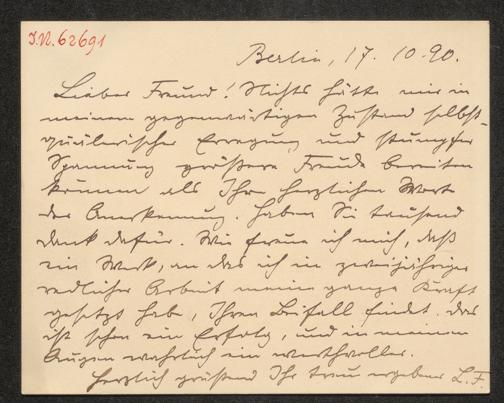 I.N. 62691
Berlin, 17. 10. 90.
Lieber Freund! Nichts hätte mir in
meinem gegenwärtigen Zustand selbst-
quälerischer Erregung und stumpfer
Spannung größere Freude bereiten
können als Ihre herzlichen Worte
der Anerkennung. Haben Sie tausend
Dank dafür. Wie freue ich mich, daß
ein Werk, an das ich in zweijähriger
redlicher Arbeit meine ganze Kraft
gesetzt habe, Ihren Beifall findet. Das
ist schon ein Erfolg, und in meinen
Augen wahrlich ein werthvoller.
Herzlich grüßend Ihr treu ergebener L. F.